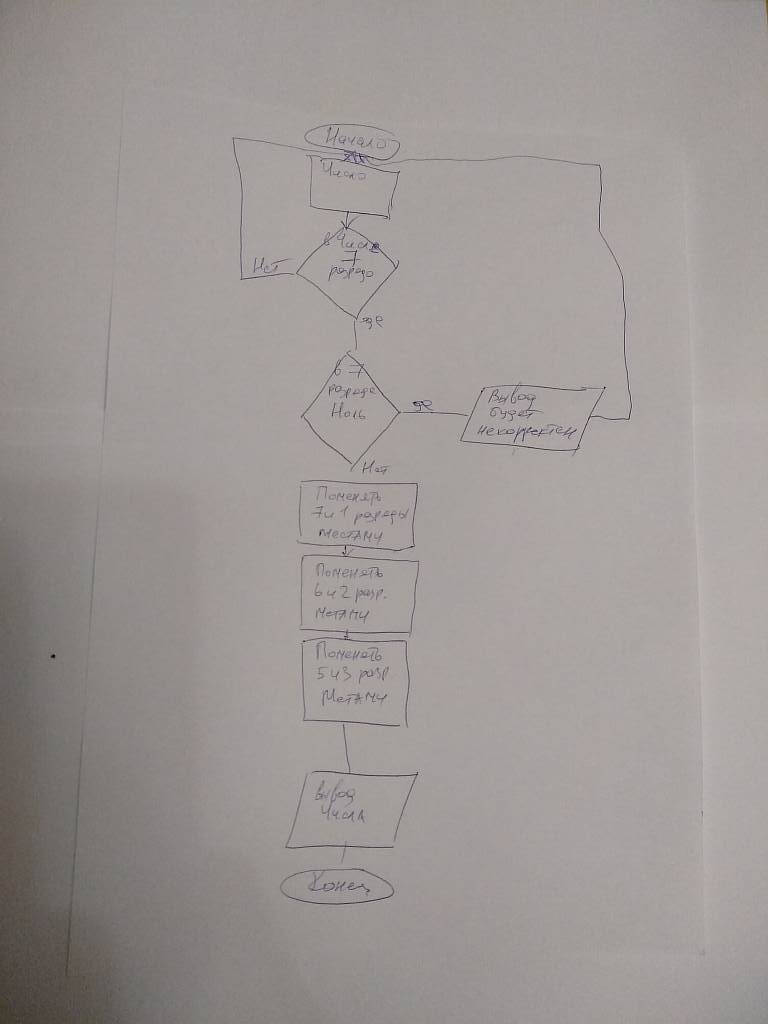 Начало
Число
в числе
7
разрядо
Нет
да
в 7
разряде
Ноль
да
Вывод
будет
некорректен
Нет
Поменять
7 и 1 разряды
местами
Поменять
6 и 2 разр.
метами
Поменять
5 и 3 разр.
метами
вывод
числа
Конец